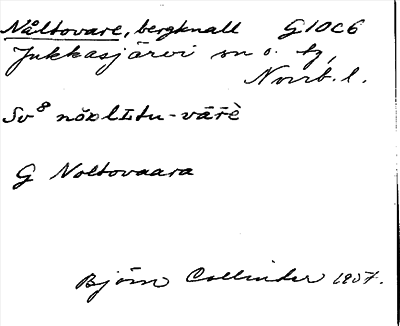 Nåltovare, bergknall G10c6
Jukkasjärvi sn o. tg,
Norrb. l.
Sv⁸ nŏʀlītu-vāřè
G Noltovaara
Björn Collinder 1957.